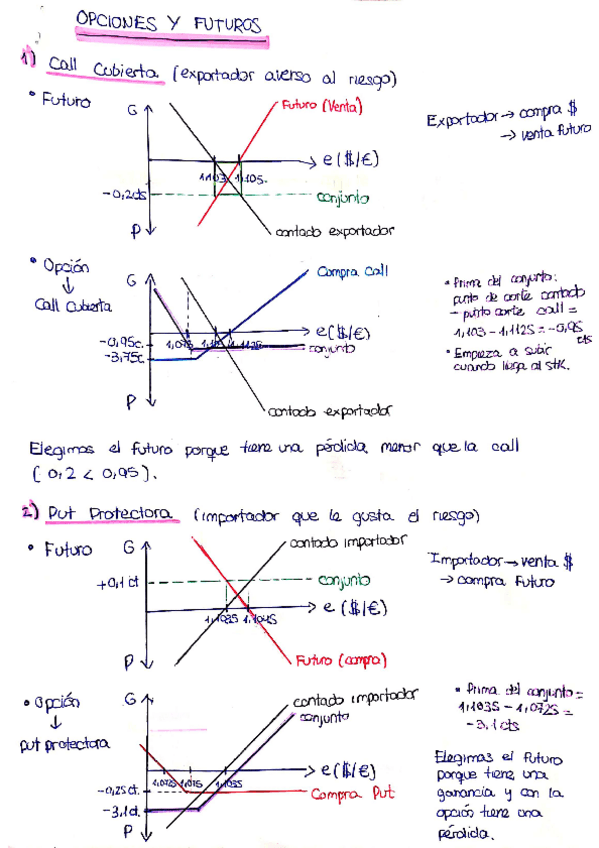 OPCIONES Y FUTUROS
1) Call Cubierta (exportador averso al riesgo)
• Futuro
G
Futuro (Venta)
e ($/€)
1,103 1,105
-0,2cts
conjunto
P
contado exportador
Exportador → compra $
→ venta futuro
• Opción
↓
Call Cubierta
G
Compra Call
e($/€)
-0,95c.
1,075
1,1125
conjunto
-3,75c.
P
contado exportador
• Prima del conjunto:
punto de corte contado
- punto corte call =
1,103 - 1,1125 = -0,95
cts
• Empieza a subir
cuando llega al stk.
Elegimos el futuro porque tiene una pérdida menor que la call
(0,2 < 0,95).
2) Put Protectora (importador que le gusta el riesgo)
• Futuro
G
contado importador
+0,1 ct
conjunto
e ($/€)
1,1035 1,1045
P
Futuro (compra)
Importador → venta $
→ compra Futuro
• Opción
↓
put protectora
G
contado importador
conjunto
e ($/€)
1,0725 1,075 1,1035
-0,25ct.
Compra Put
-3,1ct.
P
• Prima del conjunto =
1,1035 - 1,0725 =
-3,1 cts
Elegimos el Futuro
porque tiene una
ganancia y con la
opción tiene una
pérdida.